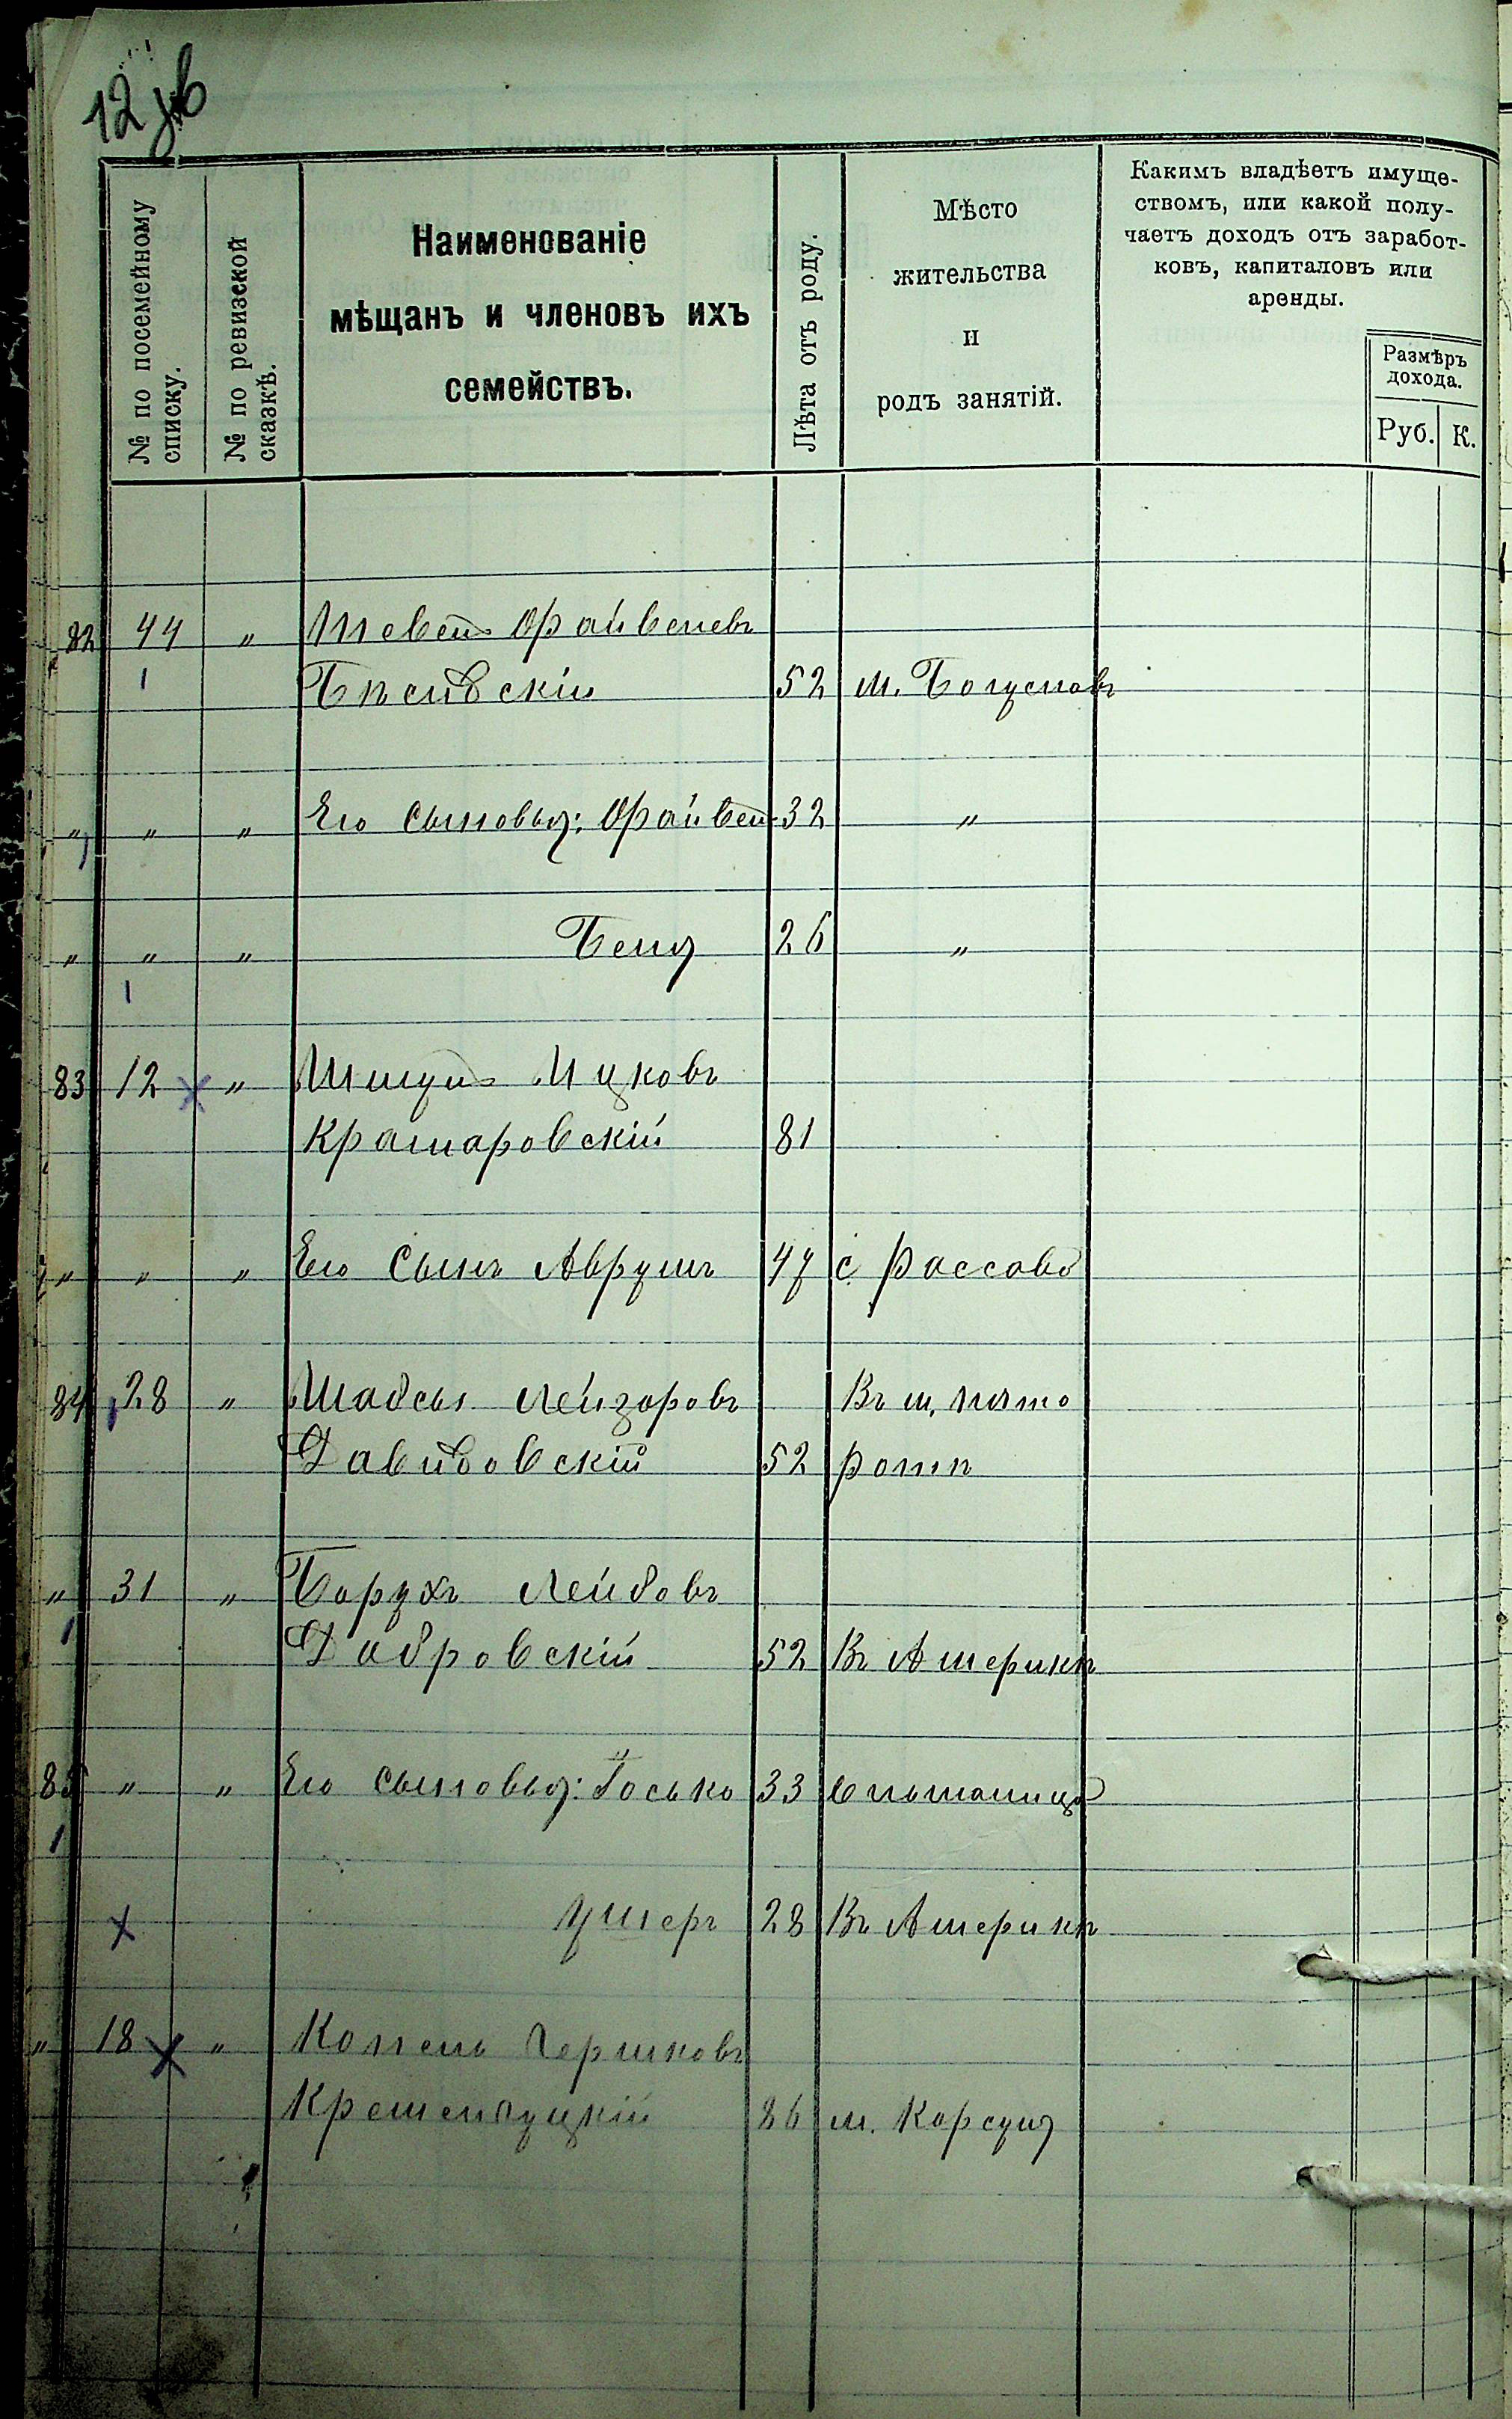 12 зв
№ по посемейному списку.
№ по ревизской сказкѣ.
Наименованіе
мѣщанъ и членовъ ихъ
семействъ.
Лѣта отъ роду.
Мѣсто
жительства
и
родъ занятій.
Какимъ владѣетъ имуще-
ствомъ, или какой полу-
чаетъ доходъ отъ заработ-
ковъ, капиталовъ или
аренды.
Размѣръ
дохода.
Руб. К.
82 44 "
52 м. Богуславъ
" " " Его сыновья: 32 "
" " " Беня 26 "
83 12 " Ицковъ
Крамаровскій 81
" " " Его сынъ Аврумъ 47 с. Россава
84 28 " Шабсы Лейзоровъ Въ м. Тато
Давидовскій 52
" 31 " Борухъ Лейбовъ
Дабровскій 52 Въ Америкѣ
85 " " Его сыновья: Іосько 33
Ушеръ 28 Въ Америкѣ
" 18 " Копель Гершковъ
Кременчуцкій 86 м. Корсунь